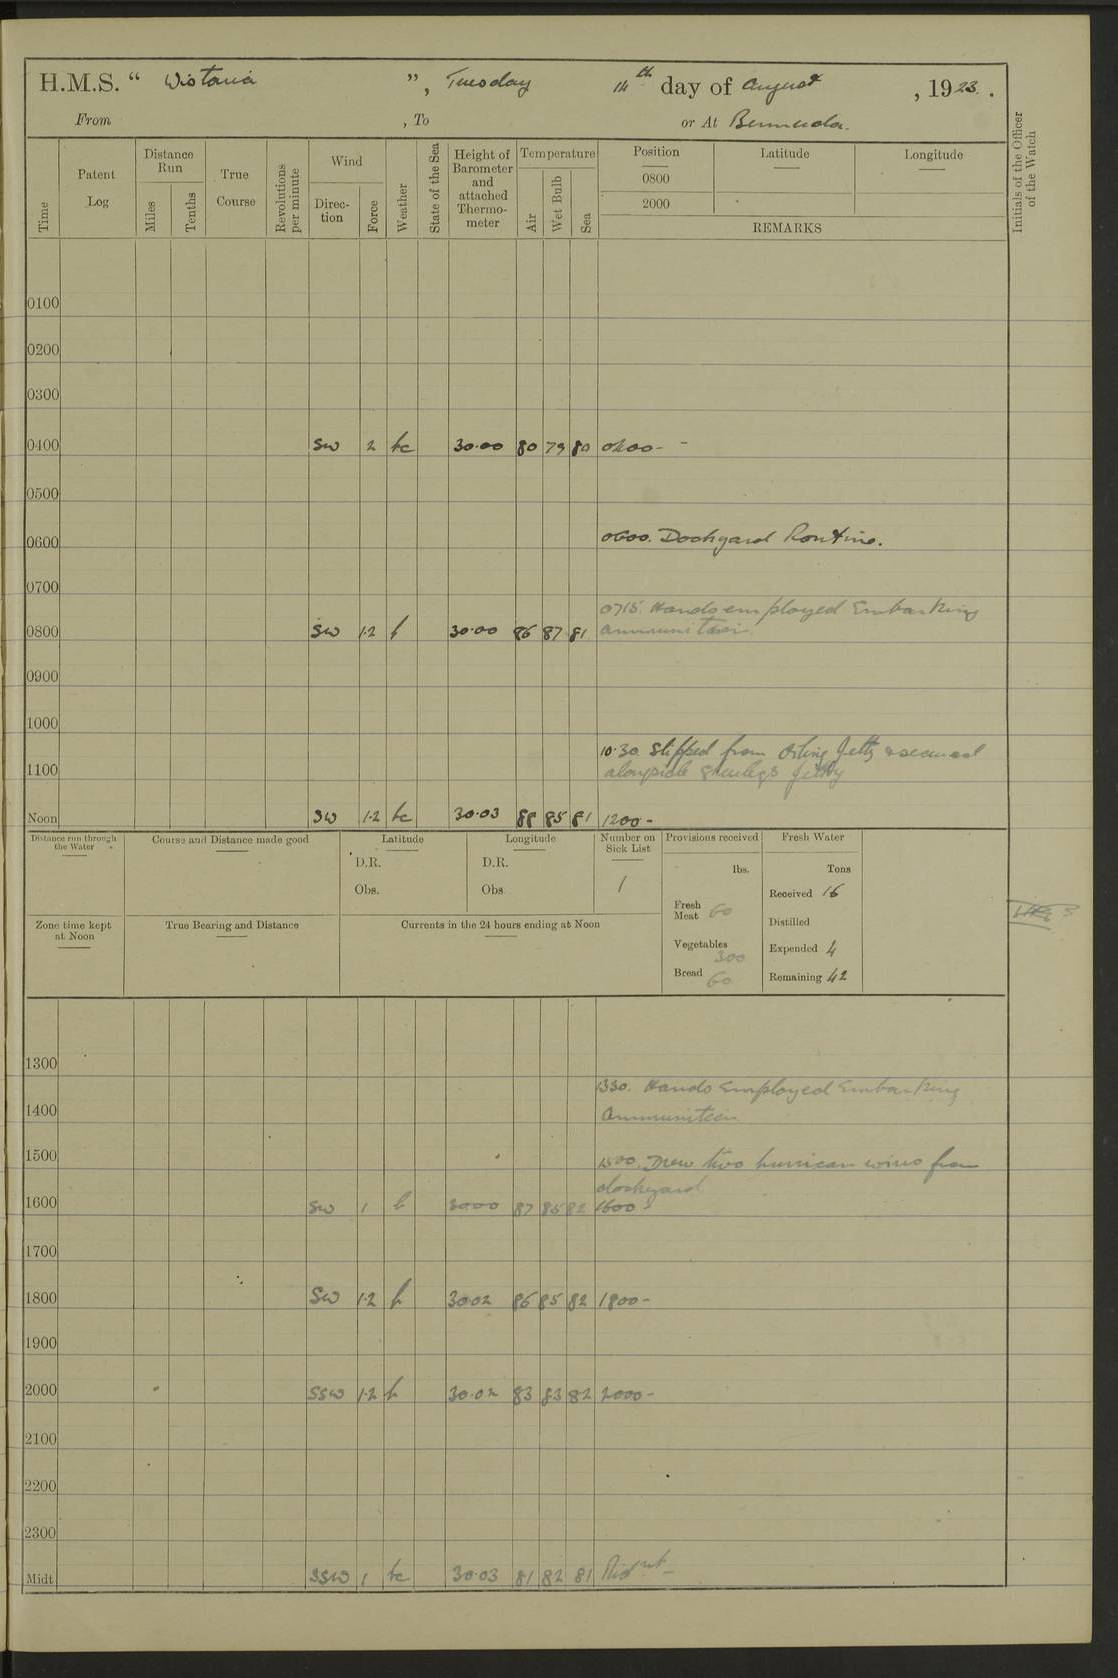 H.M.S. “ Wistaria ”, Tuesday 14th day of August, 1923.
From , To or At Bermuda.
Time
Patent Log
Distance Run
Miles
Tenths
True Course
Revolutions per minute
Wind
Direction
Force
Weather
State of the Sea
Height of Barometer and attached Thermometer
Temperature
Air
Wet Bulb
Sea
Position Latitude Longitude
0800
2000
REMARKS
Initials of the Officer of the Watch
0100
0200
0300
0400 SW 2 bc 30.00 80 79 80 0400 -
0500
0600 0600. Dockyard Routine.
0700
0715. Hands employed Embarking
0800 SW 1.2 b 30.00 86 87 81 ammunition
0900
1000
10.30 Slipped from Jetty & secured
1100 alongside Jetty
Noon SW 1.2 bc 30.03 88 85 81 1200 -
Distance run through the Water
Course and Distance made good
Latitude
D.R.
Obs.
Longitude
D.R.
Obs
Number on Sick List
1
Provisions received
lbs.
Fresh Meat 60
Vegetables 300
Bread 60
Fresh Water
Tons
Received 16
Distilled
Expended 4
Remaining 42
Zone time kept at Noon
True Bearing and Distance
Currents in the 24 hours ending at Noon
1300
1330. Hands Employed Embarking
1400 Ammunition
1500 1500. Drew two hurrican wires from
dockyard
1600 SW 1 b 3000 87 85 82 1600 -
1700
1800 SW 1.2 b 3002 86 85 82 1800 -
1900
2000 SSW 1.2 b 30.02 83 83 82 2000 -
2100
2200
2300
Midt SSW 1 bc 30.03 81 82 81 Midnt -